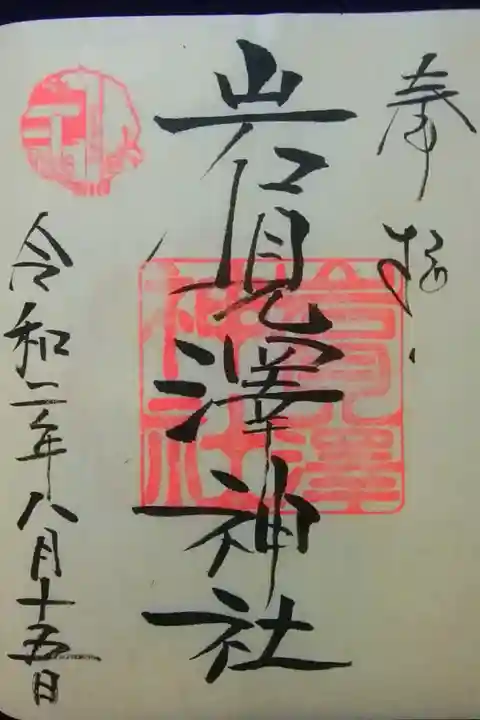 奉拝
岩見澤神社
岩見澤神社
令和二年八月十五日